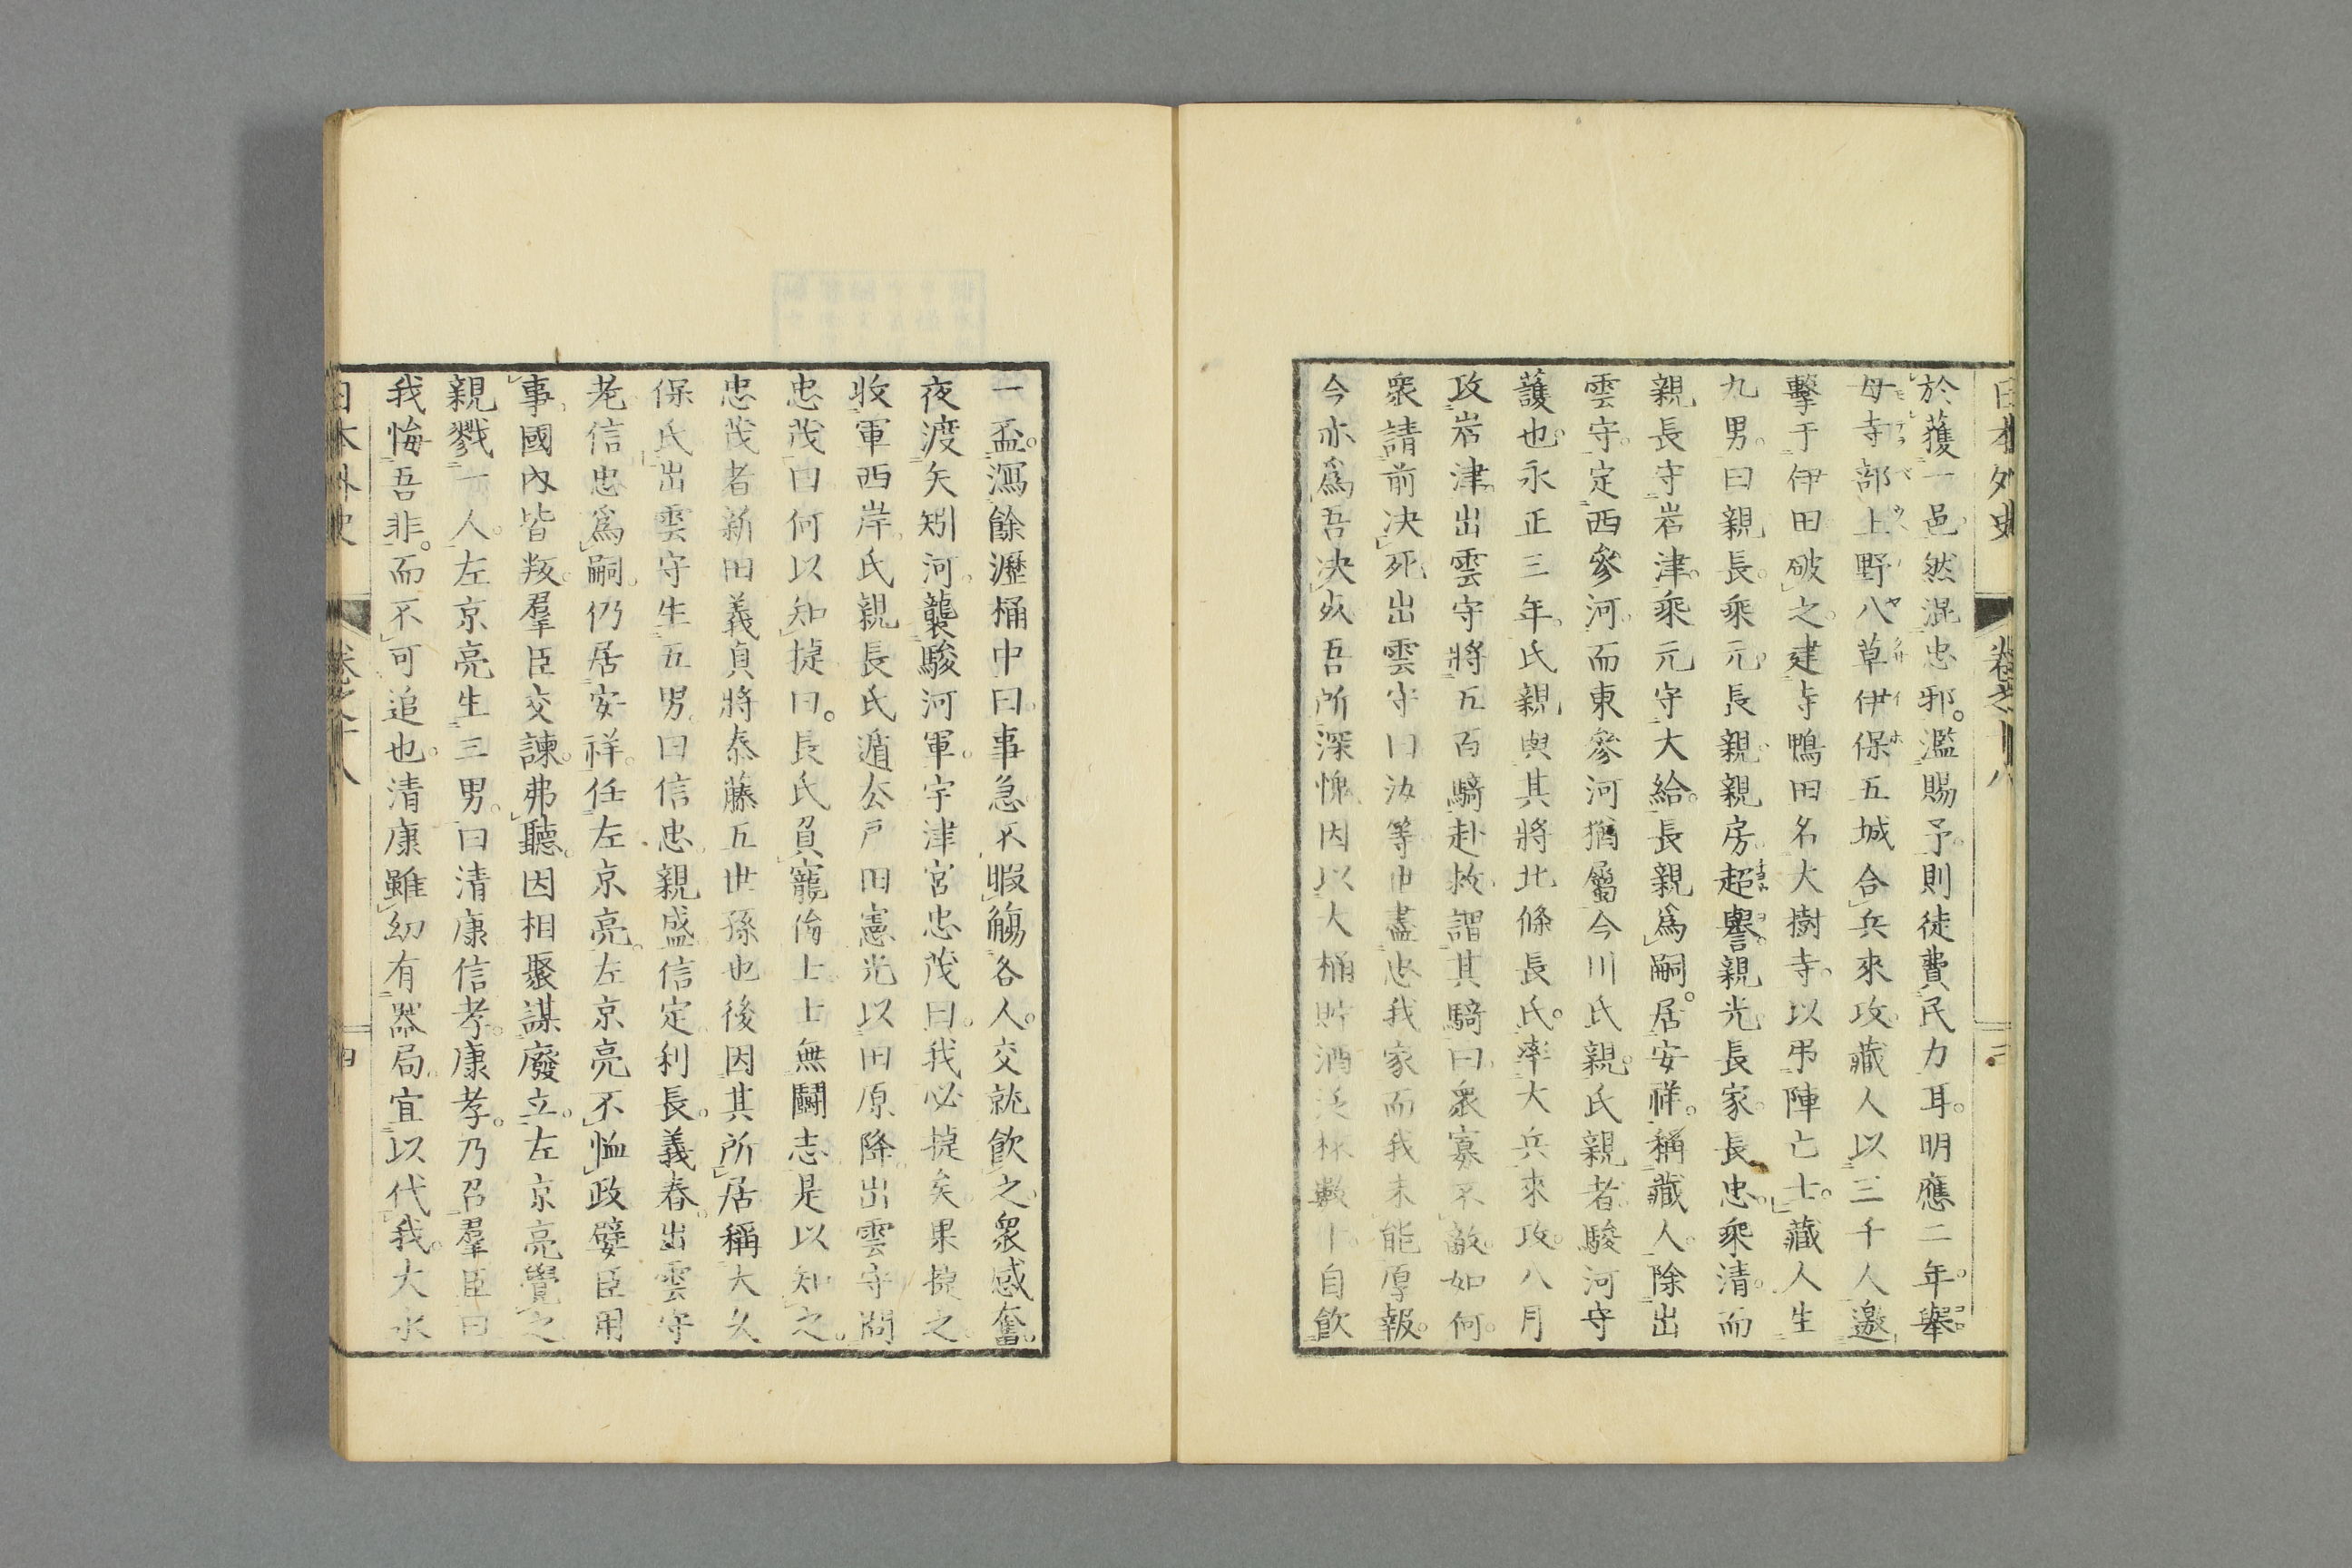 日本外史 卷之十八 三
於獲一邑然混忠邪濫賜予則徒費民力耳明應二年舉
母寺部上野八草伊保五城合兵來攻藏人以三千人邀
擊于伊田破之建寺鴨田名大樹寺以弔陣亡士藏人生
九男曰親長乘元長親親房超譽親光長家長忠乘清而
親長守岩津乘元守大給長親爲嗣居安祥稱藏人除出
雲守定西參河而東參河猶屬今川氏親氏親者駿河守
護也永正三年氏親與其將北條長氏率大兵來攻八月
攻岩津出雲守將五百騎赴救謂其騎曰衆寡不敵如何
衆請前决死出雲守曰汝等世盡忠我家而我未能厚報
今亦爲吾决死吾所深愧因以大桶貯酒泛杯數十自飲
一盃瀉餘瀝桶中曰事急不暇觴各人交就飲之衆感奮
夜渡矢矧河襲駿河軍宇津宮忠茂曰我必捷矣果捷之
收軍西岸氏親長氏遁公戶田憲光以田原降出雲守問
忠茂曰何以知捷曰長氏負寵侮上士無鬬志是以知之
忠茂者新田義貞將泰藤五世孫也後因其所居稱大久
保氏出雲守生五男曰信忠親盛信定利長義春出雲守
老信忠爲嗣仍居安祥任左京亮左京亮不恤政嬖臣用
事國內皆叛羣臣交諫弗聽因相聚謀廢立左京亮覺之
親戮一人左京亮生三男曰清康信孝康孝乃召羣臣曰
我悔吾非而不可追也清康雖幼有器局宜以代我大永
日本外史 卷之十八 四